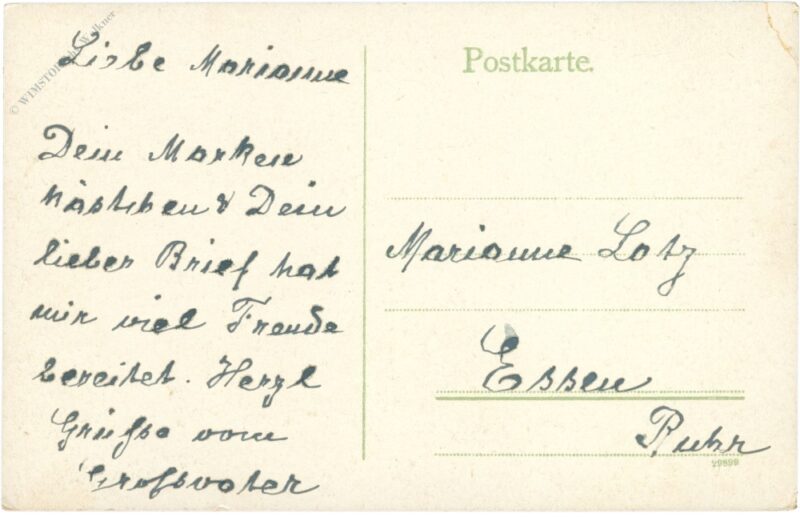 Liebe Marianne
Dein Marken
kästchen & Dein
lieber Brief hat
mir viel Freude
bereitet. Herzl
Grüsse vom
Grossvater
Postkarte.
Marianne Lotz
Essen
Ruhr
29899